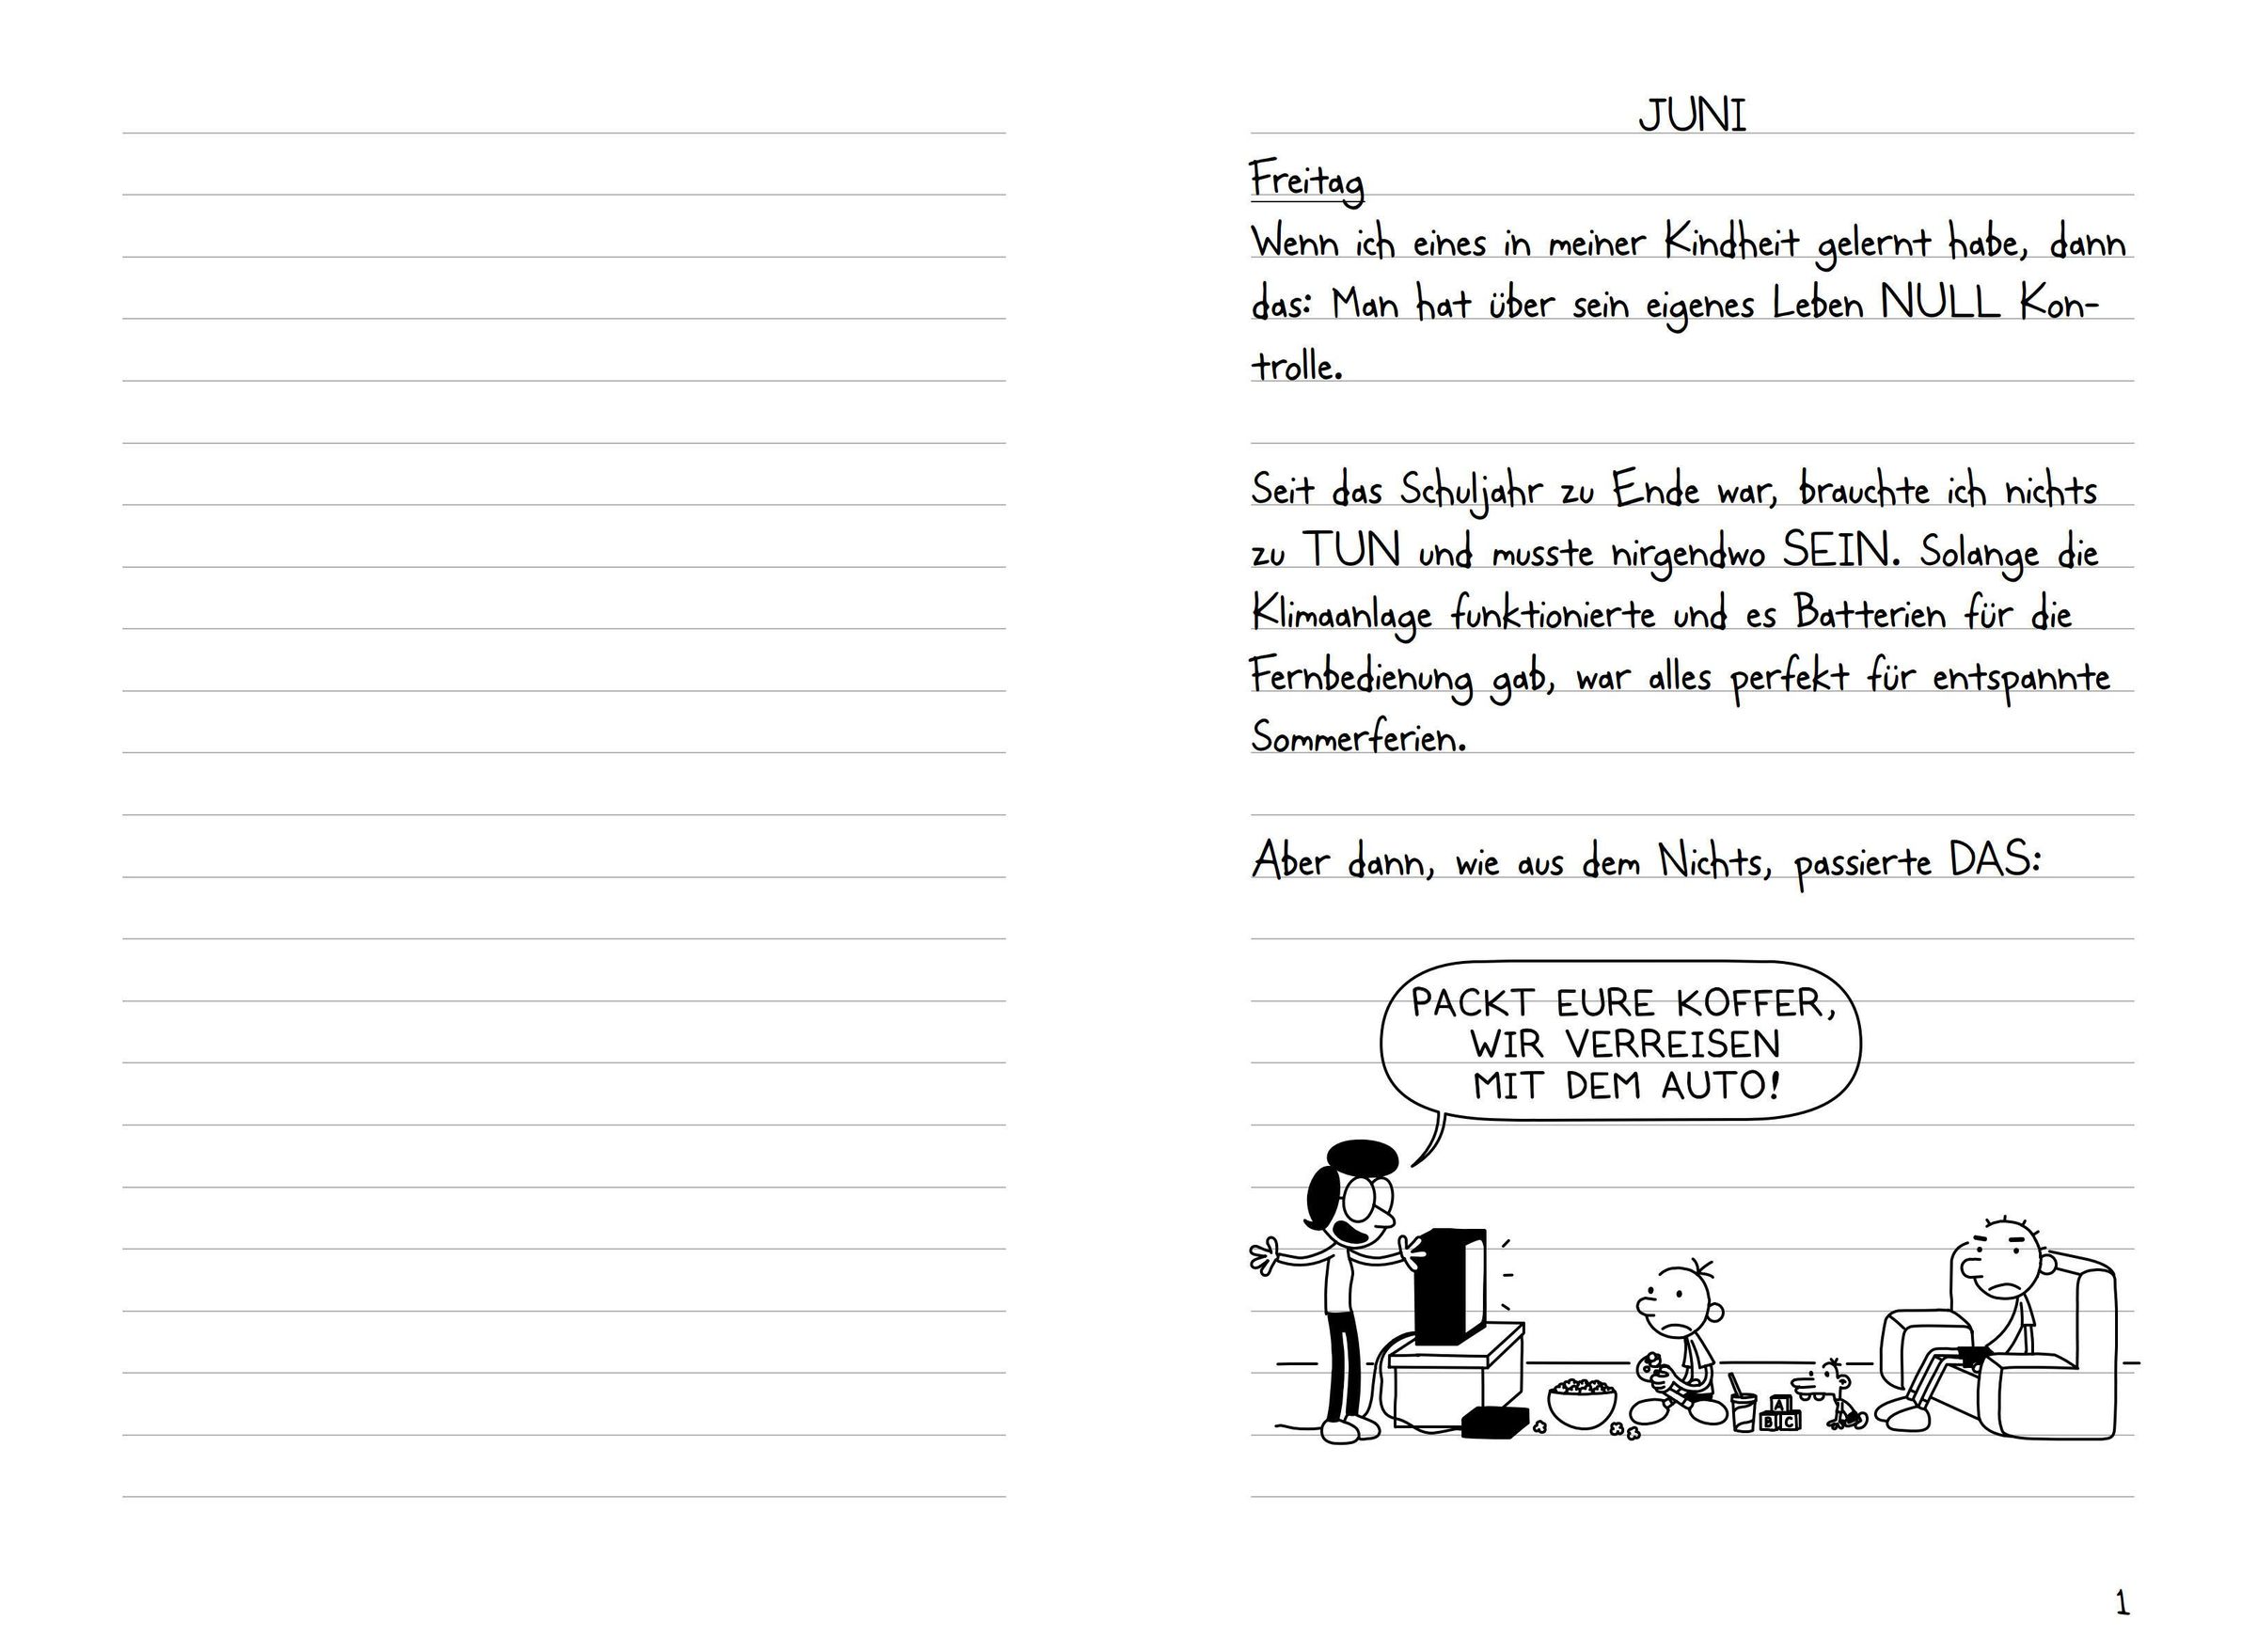 JUNI
Freitag
Wenn ich eines in meiner Kindheit gelernt habe, dann
das: Man hat über sein eigenes Leben NULL Kon-
trolle.
Seit das Schuljahr zu Ende war, brauchte ich nichts
zu TUN und musste nirgendwo SEIN. Solange die
Klimaanlage funktionierte und es Batterien für die
Fernbedienung gab, war alles perfekt für entspannte
Sommerferien.
Aber dann, wie aus dem Nichts, passierte DAS:
PACKT EURE KOFFER,
WIR VERREISEN
MIT DEM AUTO!
A
B C
1